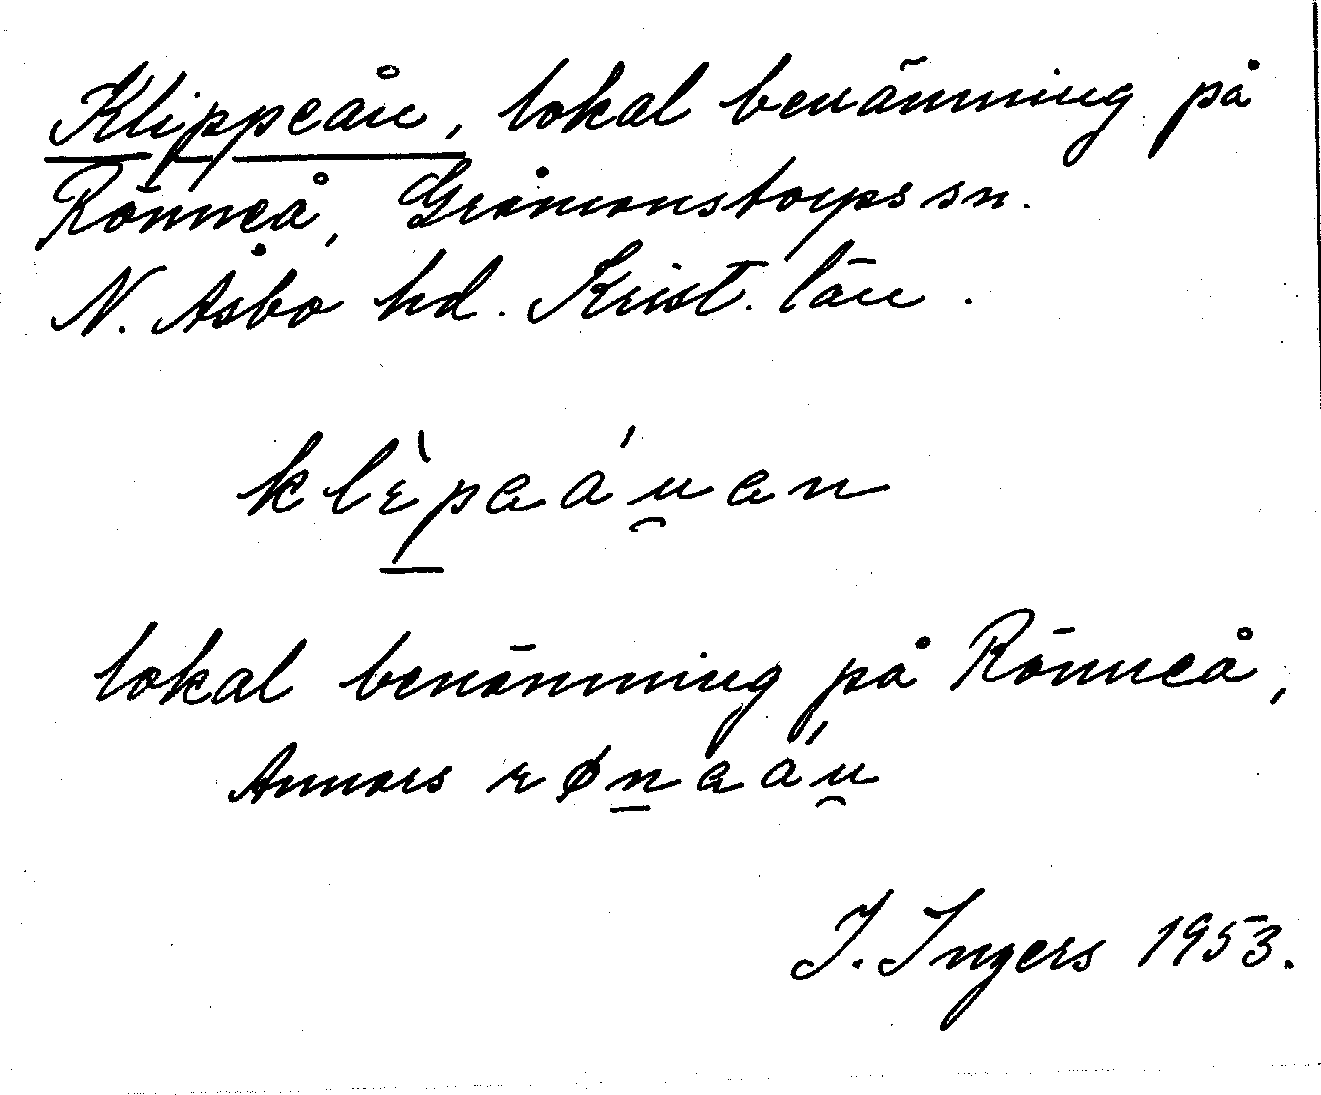 Klippeån, lokal benämning på
Rönneå, Gråmanstorps sn.
N. Åsbo hd. Krist. län.
klèpaáu̯an
lokal benämning på Rönneå,
Annars rønaáu̯
I. Ingers 1953.